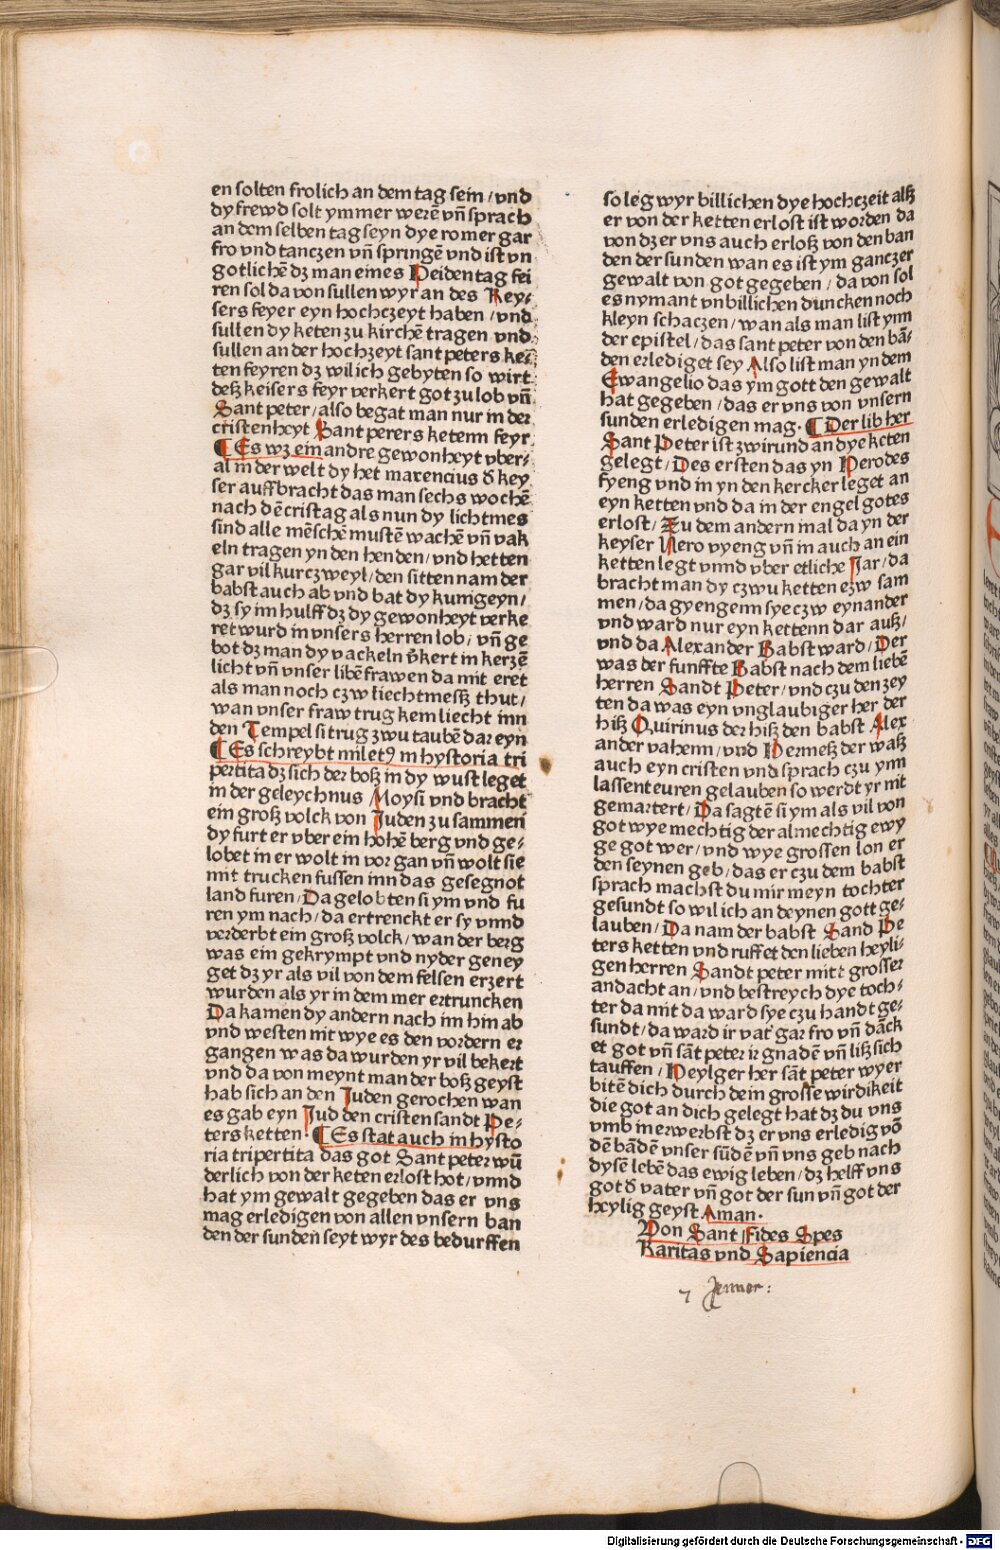 en solten frolich an dem tag sein / vnd
dy frewd solt ymmer werē vñ sprach
an dem selben tag seyn dye romer gar
fro vnd tanczen vñ springē vnd ist vn
gotlichē dz man eines Heiden tag fei
ren sol da von sullen wyr an des Key⸗
sers feyer eyn hochczeyt haben / vnd
sullen dy keten zu kirchē tragen vnd
sullen an der hochzeyt sant peters ke⸗
ten feyren dz wil ich gebyten so wirt
deß keisers feyr verkert got zu lob vñ
Sant peter / also begat man nur in der
cristenheyt Sant perers ketenn feyr
¶ Es wz ein andre gewonheyt vber⸗
al in der welt dy het maxencius d̄ key
ser auffbracht das man sechs wochē
nach dē cristag als nun dy lichtmes
sind alle mēschē mustē wachē vñ vak
eln tragen yn den henden / vnd hetten
gar vil kurczweyl / den sitten nam der
babst auch ab vnd bat dy kunigeyn /
dz sy im hulff dz dy gewonheyt verke
ret wurd in vnsers herren lob / vñ ge
bot dz man dy vackeln v̄kert in kerzē
licht vñ vnser libē frawen da mit eret
als man noch czw liechtmesß thut /
wan vnser fraw trug kem liecht inn
den Tempel si trug zwu taubē dar eyn
¶ Es schreybt miletꝰ in hystoria tri
pertita dz sich der boß in dy wust leget
in der geleychnus Moysi vnd bracht
ein groß volck von Juden zu sammen
dy furt er vber ein hohē berg vnd ge⸗
lobet in er wolt in vor gan vñ wolt sie
mit trucken fussen inn das gesegnot
land furen / Da gelobten si ym vnd fu
ren ym nach / da ertrenckt er sy vnnd
verderbt ein groß volck / wan der berg
was ein gekrympt vnd nyder geney
get dz yr als vil von dem felsen erzert
wurden als yr in dem mer ertruncken
Da kamen dy andern nach im hin ab
vnd westen nit wye es den vordern er
gangen was da wurden yr vil bekert
vnd da von meynt man der boß geyst
hab sich an den Juden gerochen wan
es gab eyn Jud den cristen sandt Pe⸗
ters ketten. ¶ Es stat auch in hysto
ria tripertita das got Sant peter wū
derlich von der keten erlost hot / vnnd
hat ym gewalt gegeben das er vns
mag erledigen von allen vnsern ban
den der sunden seyt wyr des bedurffen
so leg wyr billichen dye hochczeit alß
er von der ketten erlost ist worden da
von dz er vns auch erloß von den ban
den der sunden wan es ist ym ganczer
gewalt von got gegeben / da von sol
es nymant vnbillichen duncken noch
kleyn schaczen / wan als man list ynn
der epistel / das sant peter von den bā⸗
den erlediget sey Also list man yn dem
Ewangelio das ym gott den gewalt
hat gegeben / das er vns von vnsern
sunden erledigen mag. ¶ Der lib her
Sant Peter ist zwirund an dye keten
gelegt / Des ersten das yn Herodes
fyeng vnd in yn den kercker leget an
eyn ketten vnd da in der engel gotes
erlost / Zu dem andern mal da yn der
keyser Nero vyeng vñ in auch an ein
ketten legt vnnd vber etliche Jar / da
bracht man dy czwu ketten czw sam
men / da gyengenn sye czw eynander
vnd ward nur eyn kettenn dar auß /
vnd da Alexander Babst ward / Der
was der funffte Babst nach dem liebē
herren Sandt Peter / vnd czu den zey
ten da was eyn vnglaubiger her der
hiß Quirinus der hiß den babst Alex
ander vahenn / vnd Hermeß der waß
auch eyn cristen vnd sprach czu ym
lassent euren gelauben so werdt yr mit
gemartert / Da sagtē si ym als vil von
got wye mechtig der almechtig ewy
ge got wer / vnd wye grossen lon er
den seynen geb / das er czu dem babst
sprach machst du mir meyn tochter
gesundt so wil ich an deynen gott ge⸗
lauben / Da nam der babst Sand Pe
ters ketten vnd ruffet den lieben heyli⸗
gen herren Sandt peter mitt grosser
andacht an / vnd bestreych dye toch⸗
ter da mit da ward sye czu handt ge⸗
sundt / da ward ir vat̄ gar fro vñ dāck
et got vñ sāt peter ir gnadē vñ liß sich
tauffen / Heylger her sāt peter wyer
bitē dich durch dein grosse wirdikeit
die got an dich gelegt hat dz du vns
vmb in erwerbst dz er vns erledig vō
dē bādē vnser sūdē vñ vns geb nach
dysē lebē das ewig leben / dz helff vns
got d̄ vater vñ got der sun vñ got der
heylig geyst Aman.
Von Sant Fides Spes
Karitas vnd Sapiencia
7 Jenner:
Digitalisierung gefördert durch die Deutsche Forschungsgemeinschaft - DFG